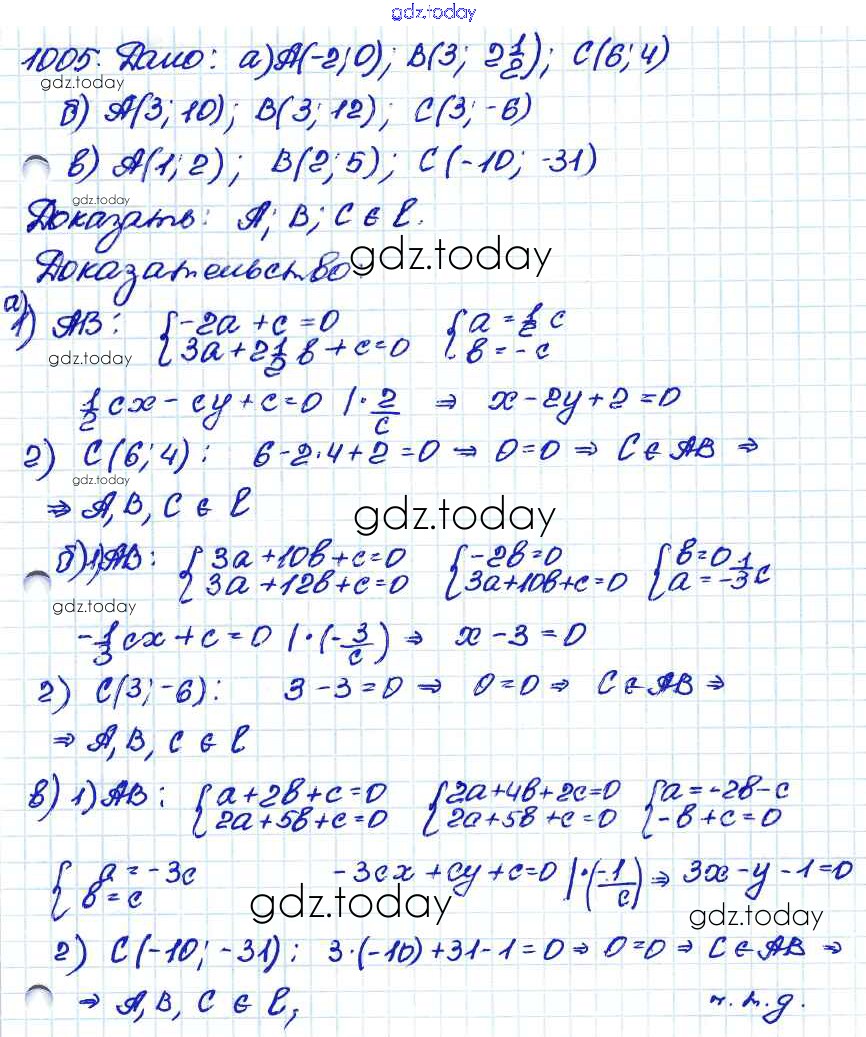 gdz.today
1005. Дано: а) A(-2; 0); B(3; 2 1/2); C(6; 4)
gdz.today
б) A(3; 10); B(3; 12); C(3; -6)
в) A(1; 2); B(2; 5); C(-10; -31)
gdz.today
Доказать: A; B; C ∈ l.
Доказательство: gdz.today
а)
1) AB: { -2a + c = 0 { a = 1/2 c
{ 3a + 2 1/2 b + c = 0 { b = -c
gdz.today
1/2 cx - cy + c = 0 | · 2/c ⇒ x - 2y + 2 = 0
2) C(6; 4): 6 - 2·4 + 2 = 0 ⇒ 0 = 0 ⇒ C ∈ AB ⇒
gdz.today
⇒ A, B, C ∈ l gdz.today
б) 1) AB: { 3a + 10b + c = 0 { -2b = 0 { b = 0
{ 3a + 12b + c = 0 { 3a + 10b + c = 0 { a = -1/3 c
gdz.today
-1/3 cx + c = 0 | · (-3/c) ⇒ x - 3 = 0
2) C(3; -6): 3 - 3 = 0 ⇒ 0 = 0 ⇒ C ∈ AB ⇒
⇒ A, B, C ∈ l
в) 1) AB: { a + 2b + c = 0 { 2a + 4b + 2c = 0 { a = -2b - c
{ 2a + 5b + c = 0 { 2a + 5b + c = 0 { -b + c = 0
{ a = -3c -3cx + cy + c = 0 | · (-1/c) ⇒ 3x - y - 1 = 0
{ b = c
gdz.today gdz.today
2) C(-10; -31): 3·(-10) + 31 - 1 = 0 ⇒ 0 = 0 ⇒ C ∈ AB ⇒
⇒ A, B, C ∈ l, ч.т.д.